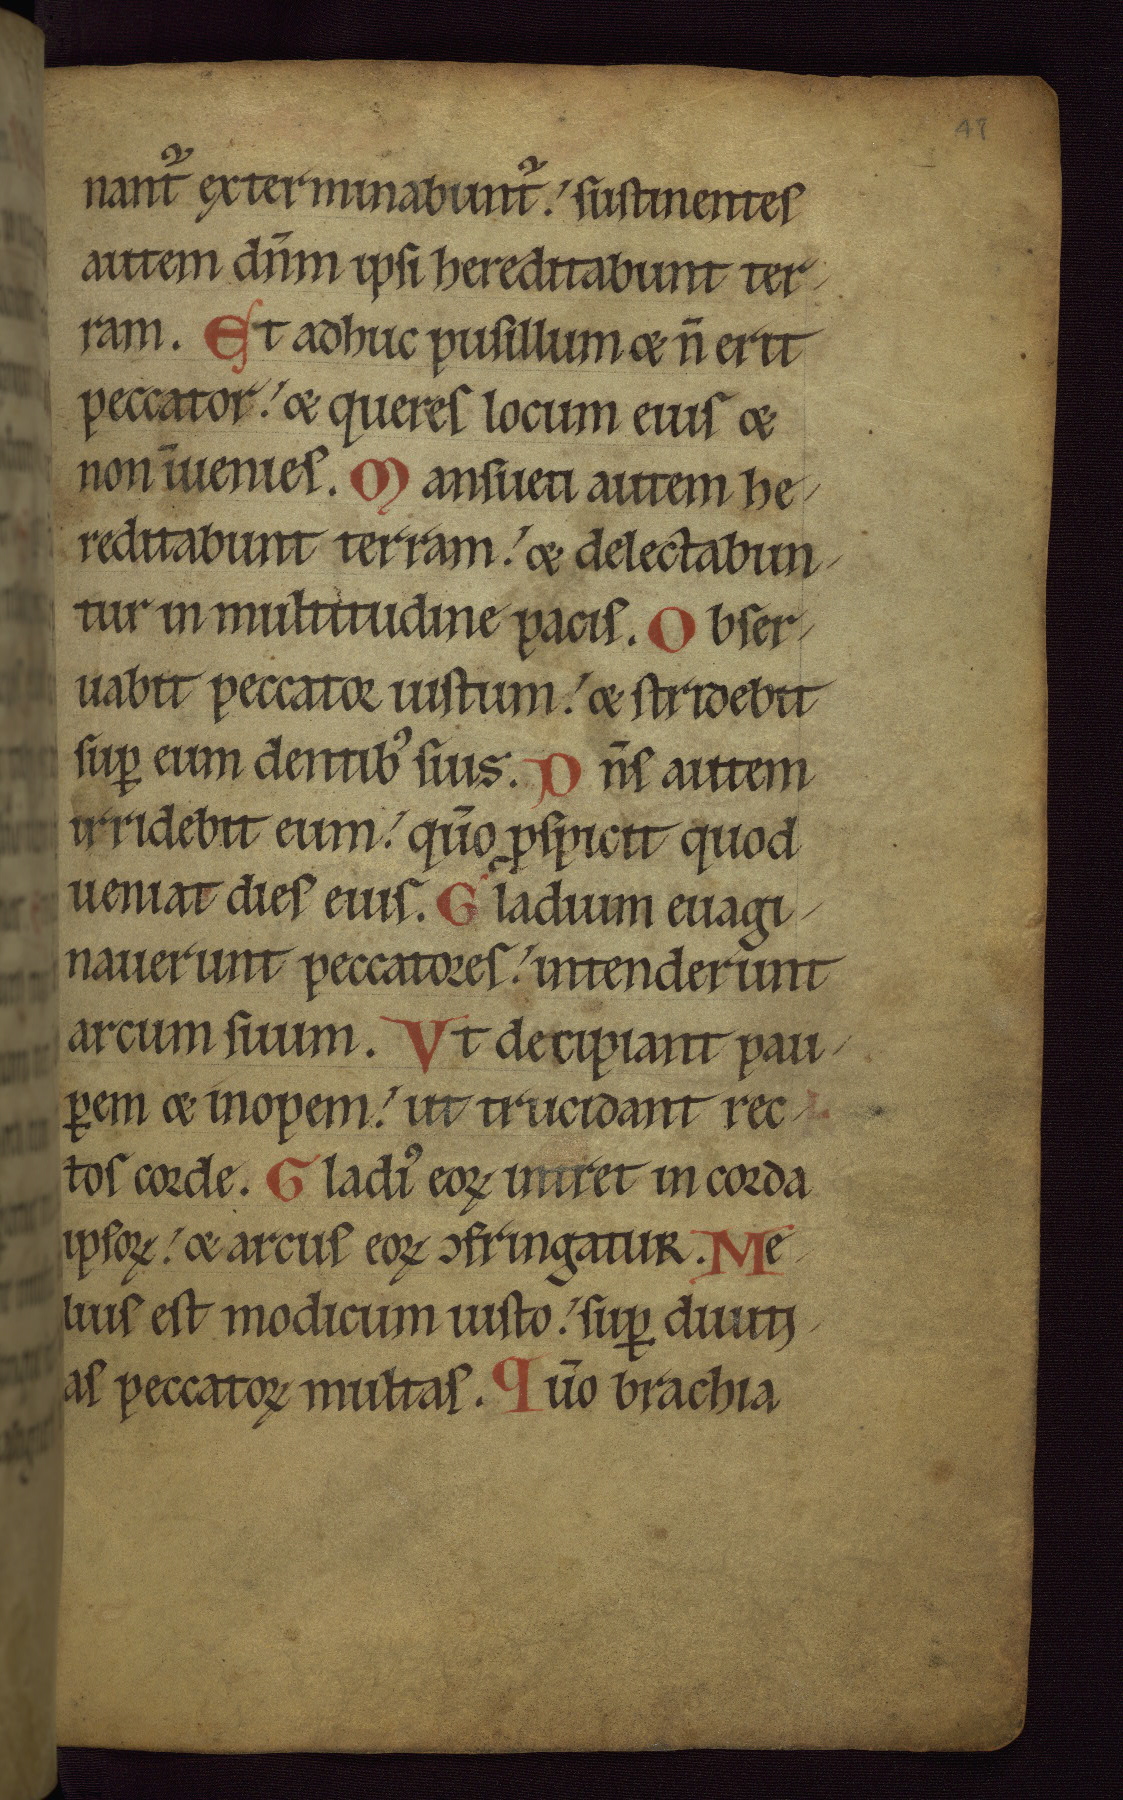 48
nant᷑ exterminabunt᷑. sustinentes
autem dn̄m ipsi hereditabunt ter-
ram. Et adhuc pusillum & n̄ erit
peccator. & queres locum eius &
non īuenies. Mansueti autem he-
reditabunt terram. & delectabun-
tur in multitudine pacis. Obser-
uabit peccator iustum. & stridebit
suꝑ eum dentibꝰ suis. Dn̄s autem
irridebit eum. qūo ꝓspicit quod
ueniat dies eius. Gladium euagi-
nauerunt peccatores. intenderunt
arcum suum. Vt decipiant pau-
ꝑem & inopem. ut trucidant rec-
tos corde. Gladiꝰ eoꝝ intret in corda
ipsoꝝ. & arcus eoꝝ ꝯfringatur. Me-
lius est modicum iusto. suꝑ diuiti-
as peccatoꝝ multas. Qūo brachia